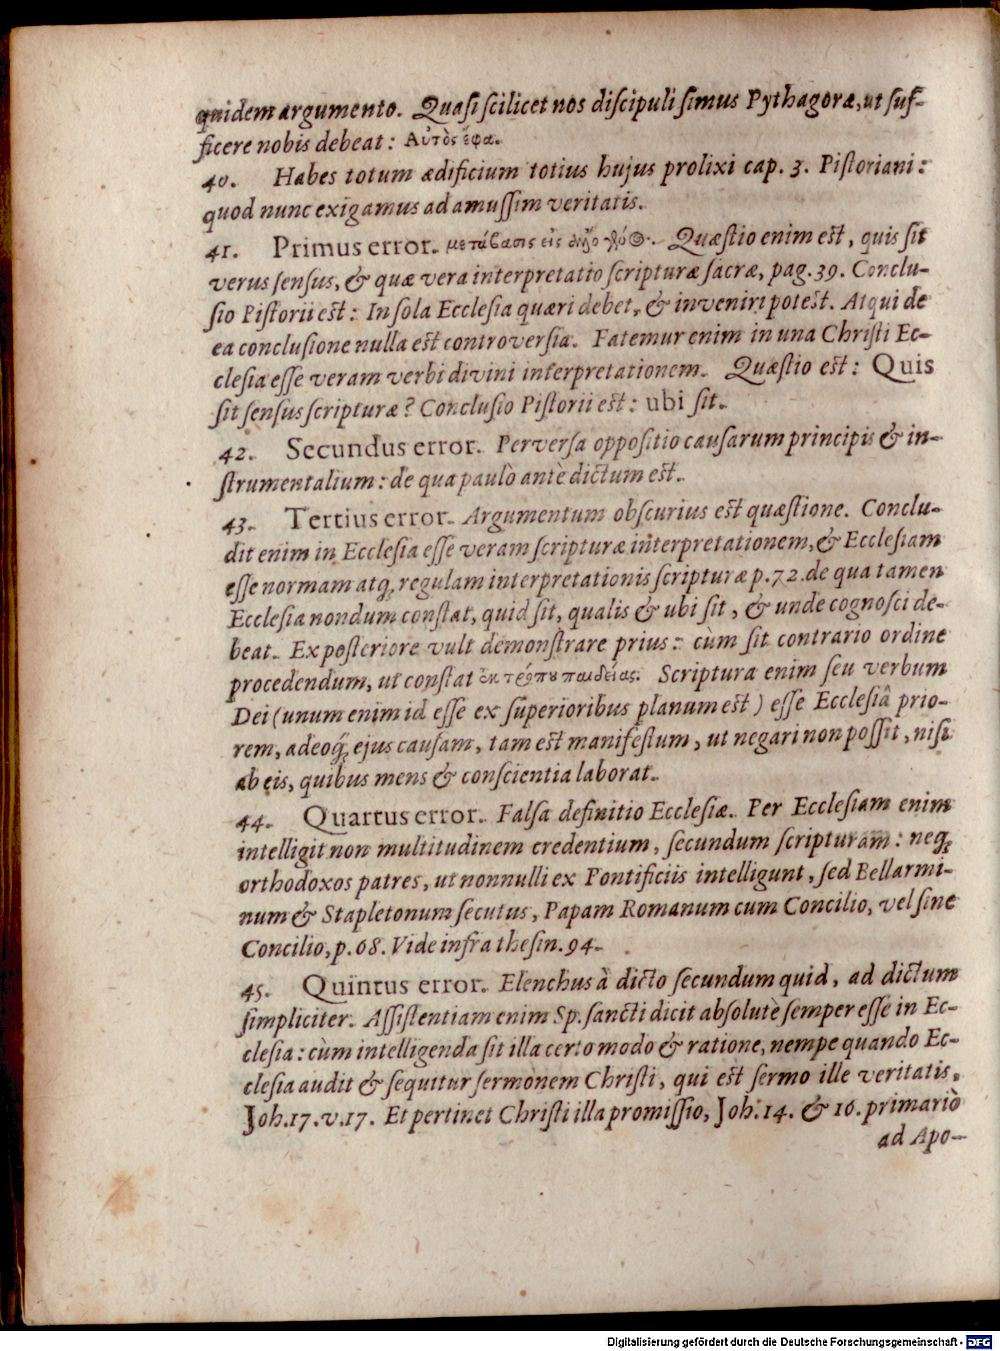 quidem argumento. Quasi scilicet nos discipuli simus Pythagoræ, ut suf-
ficere nobis debeat: Αὐτὸς ἔφα.
40. Habes totum ædificium totius hujus prolixi cap. 3. Pistoriani:
quod nunc exigamus ad amussim veritatis.
41. Primus error. μετάβασις εἰς ἄλλο γένος. Quæstio enim est, quis sit
verus sensus, & quæ vera interpretatio scripturæ sacræ, pag. 39. Conclu-
sio Pistorii est: In sola Ecclesia quæri debet, & inveniri potest. Atqui de
ea conclusione nulla est controversia. Fatemur enim in una Christi Ec-
clesia esse veram verbi divini interpretationem. Quæstio est: Quis
sit sensus scripturæ? Conclusio Pistorii est: ubi sit.
42. Secundus error. Perversa oppositio causarum principis & in-
strumentalium: de qua paulò antè dictum est.
43. Tertius error. Argumentum obscurius est quæstione. Conclu-
dit enim in Ecclesia esse veram scripturæ interpretationem, & Ecclesiam
esse normam atq; regulam interpretationis scripturæ p. 72. de qua tamen
Ecclesia nondum constat, quid sit, qualis & ubi sit, & unde cognosci de-
beat. Ex posteriore vult demonstrare prius: cùm sit contrario ordine
procedendum, ut constat ἐκ τρόπου παιδείας. Scriptura enim seu verbum
Dei (unum enim id esse ex superioribus planum est) esse Ecclesiâ prio-
rem, adeoq; ejus causam, tam est manifestum, ut negari non possit, nisi
ab eis, quibus mens & conscientia laborat.
44. Quartus error. Falsa definitio Ecclesiæ. Per Ecclesiam enim
intelligit non multitudinem credentium, secundum scripturam: neq;
orthodoxos patres, ut nonnulli ex Pontificiis intelligunt, sed Bellarmi-
num & Stapletonum secutus, Papam Romanum cum Concilio, vel sine
Concilio, p. 68. Vide infra thesin. 94.
45. Quintus error. Elenchus à dicto secundum quid, ad dictum
simpliciter. Assistentiam enim Sp. sancti dicit absolutè semper esse in Ec-
clesia: cùm intelligenda sit illa certo modo & ratione, nempe quando Ec-
clesia audit & sequitur sermonem Christi, qui est sermo ille veritatis,
Joh. 17. v. 17. Et pertinet Christi illa promissio, Joh. 14. & 16. primariò
ad Apo-
Digitalisierung gefördert durch die Deutsche Forschungsgemeinschaft - DFG